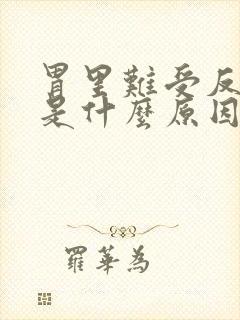 胃里難受反
是什麼原因
羅華為